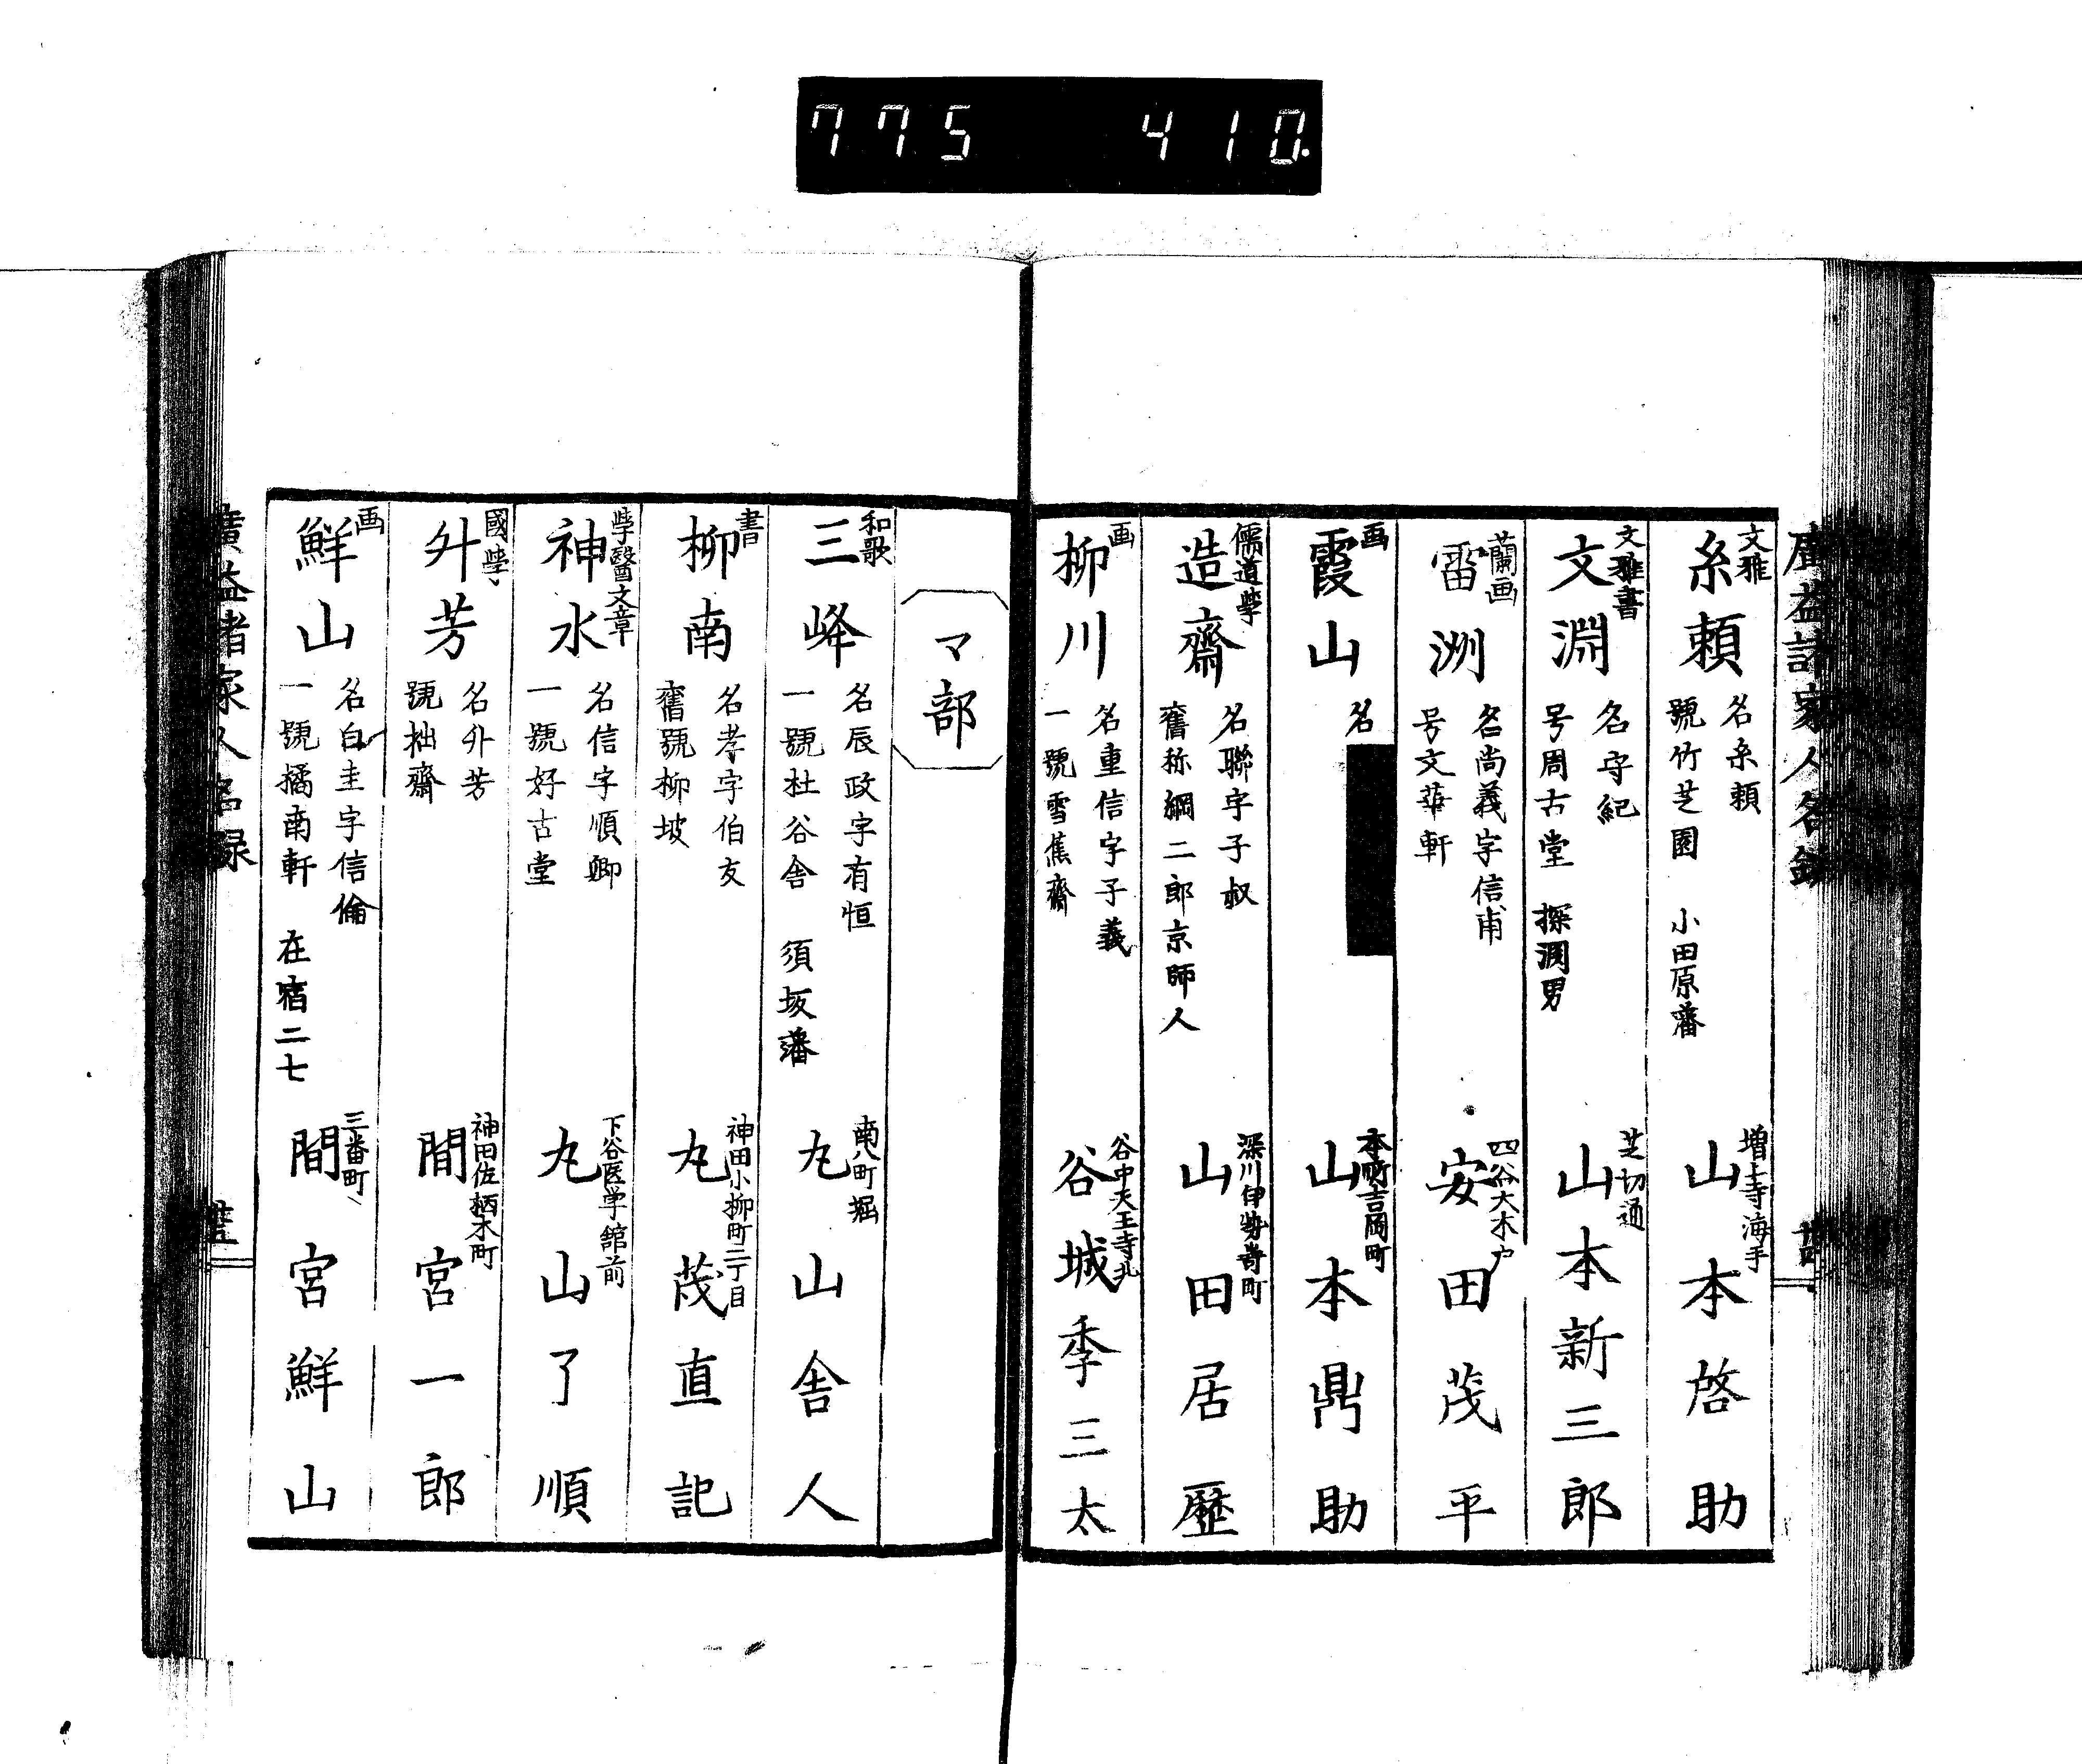 775 410.
廣益諸家人名録
文雅
糸頼
名糸頼
號竹芝園 小田原藩
増上寺海手
山本啓助
文雅書
文淵
名守紀
号周古堂 探淵男
芝切通
山本新三郎
蘭画
雷洲
名尚義字信甫
号文華軒
四谷大木戸
安田茂平
画
霞山
名
本所吉岡町
山本鼎助
儒道學
造齋
名聯字子叔
舊称綱二郎京師人
深川伊勢嵜町
山田居歷
画
柳川
名重信字子義
一號雪蕉齋
谷中天王寺北
谷城季三太
マ部
和歌
三峰
名辰政字有恒
一號杜谷舎 須坂藩
南八町堀
丸山舎人
書
柳南
名孝字伯友
舊號柳坡
神田小柳町二丁目
丸茂直記
學醫文章
神水
名信字順卿
一號好古堂
下谷医学館前
丸山了順
國學
外芳
名外芳
號拙齋
神田佐柄木町
間宮一郎
画
鮮山
名白圭字信倫
一號橘南軒 在宿二七
三番町
間宮鮮山
廣益諸家人名録